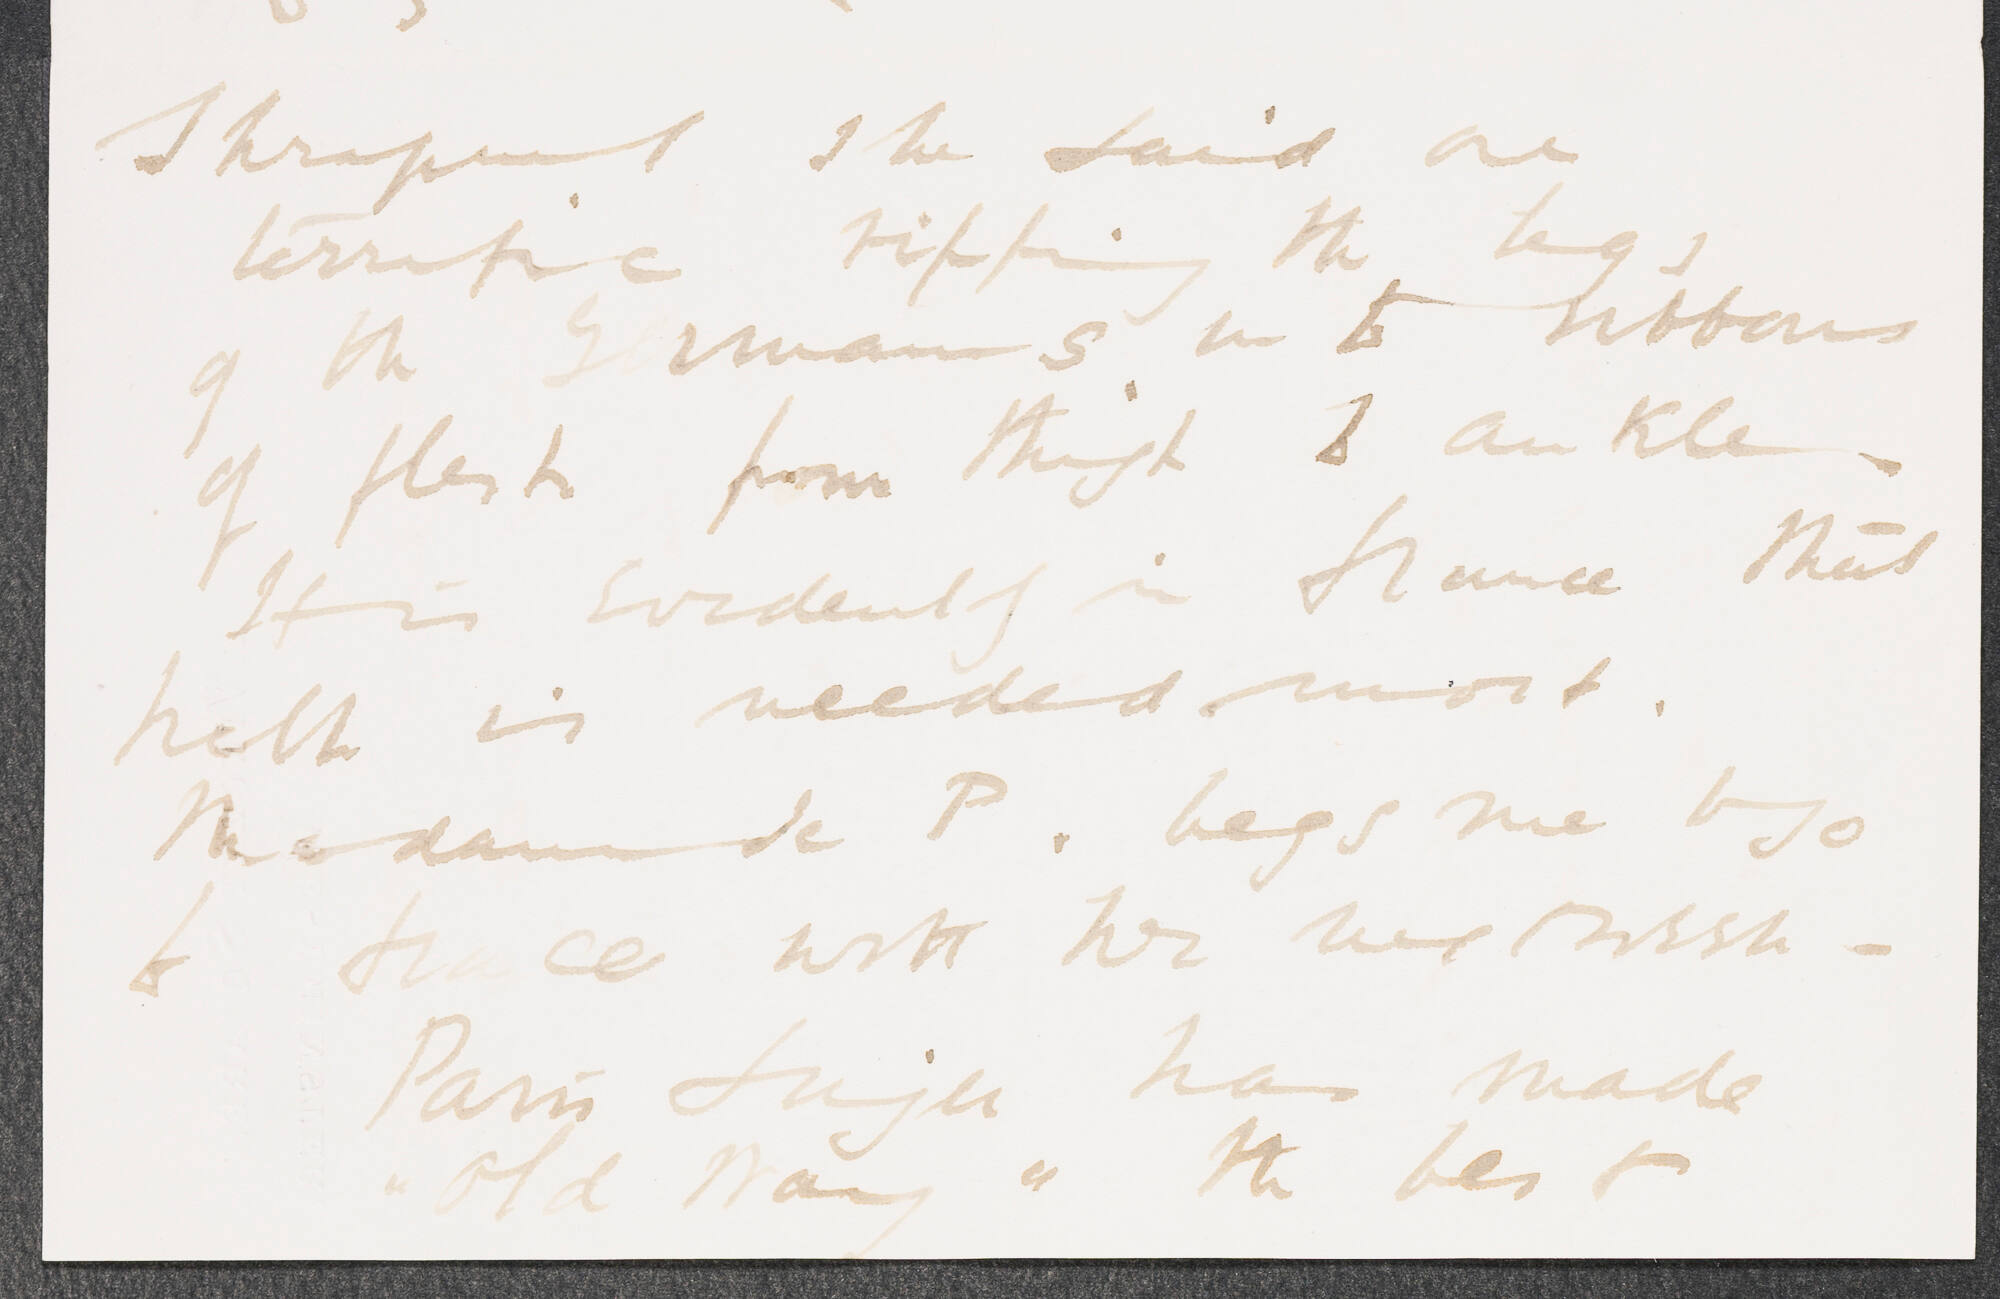 Shrapnel she said are
terrific ripping the legs
of the Germans into ribbons
of flesh from thigh to ankle -
It is evidently in France that
help is needed most.
Madame de P. begs me to go
to France with her next week -
Paris Singer has made
"Old Way" the best